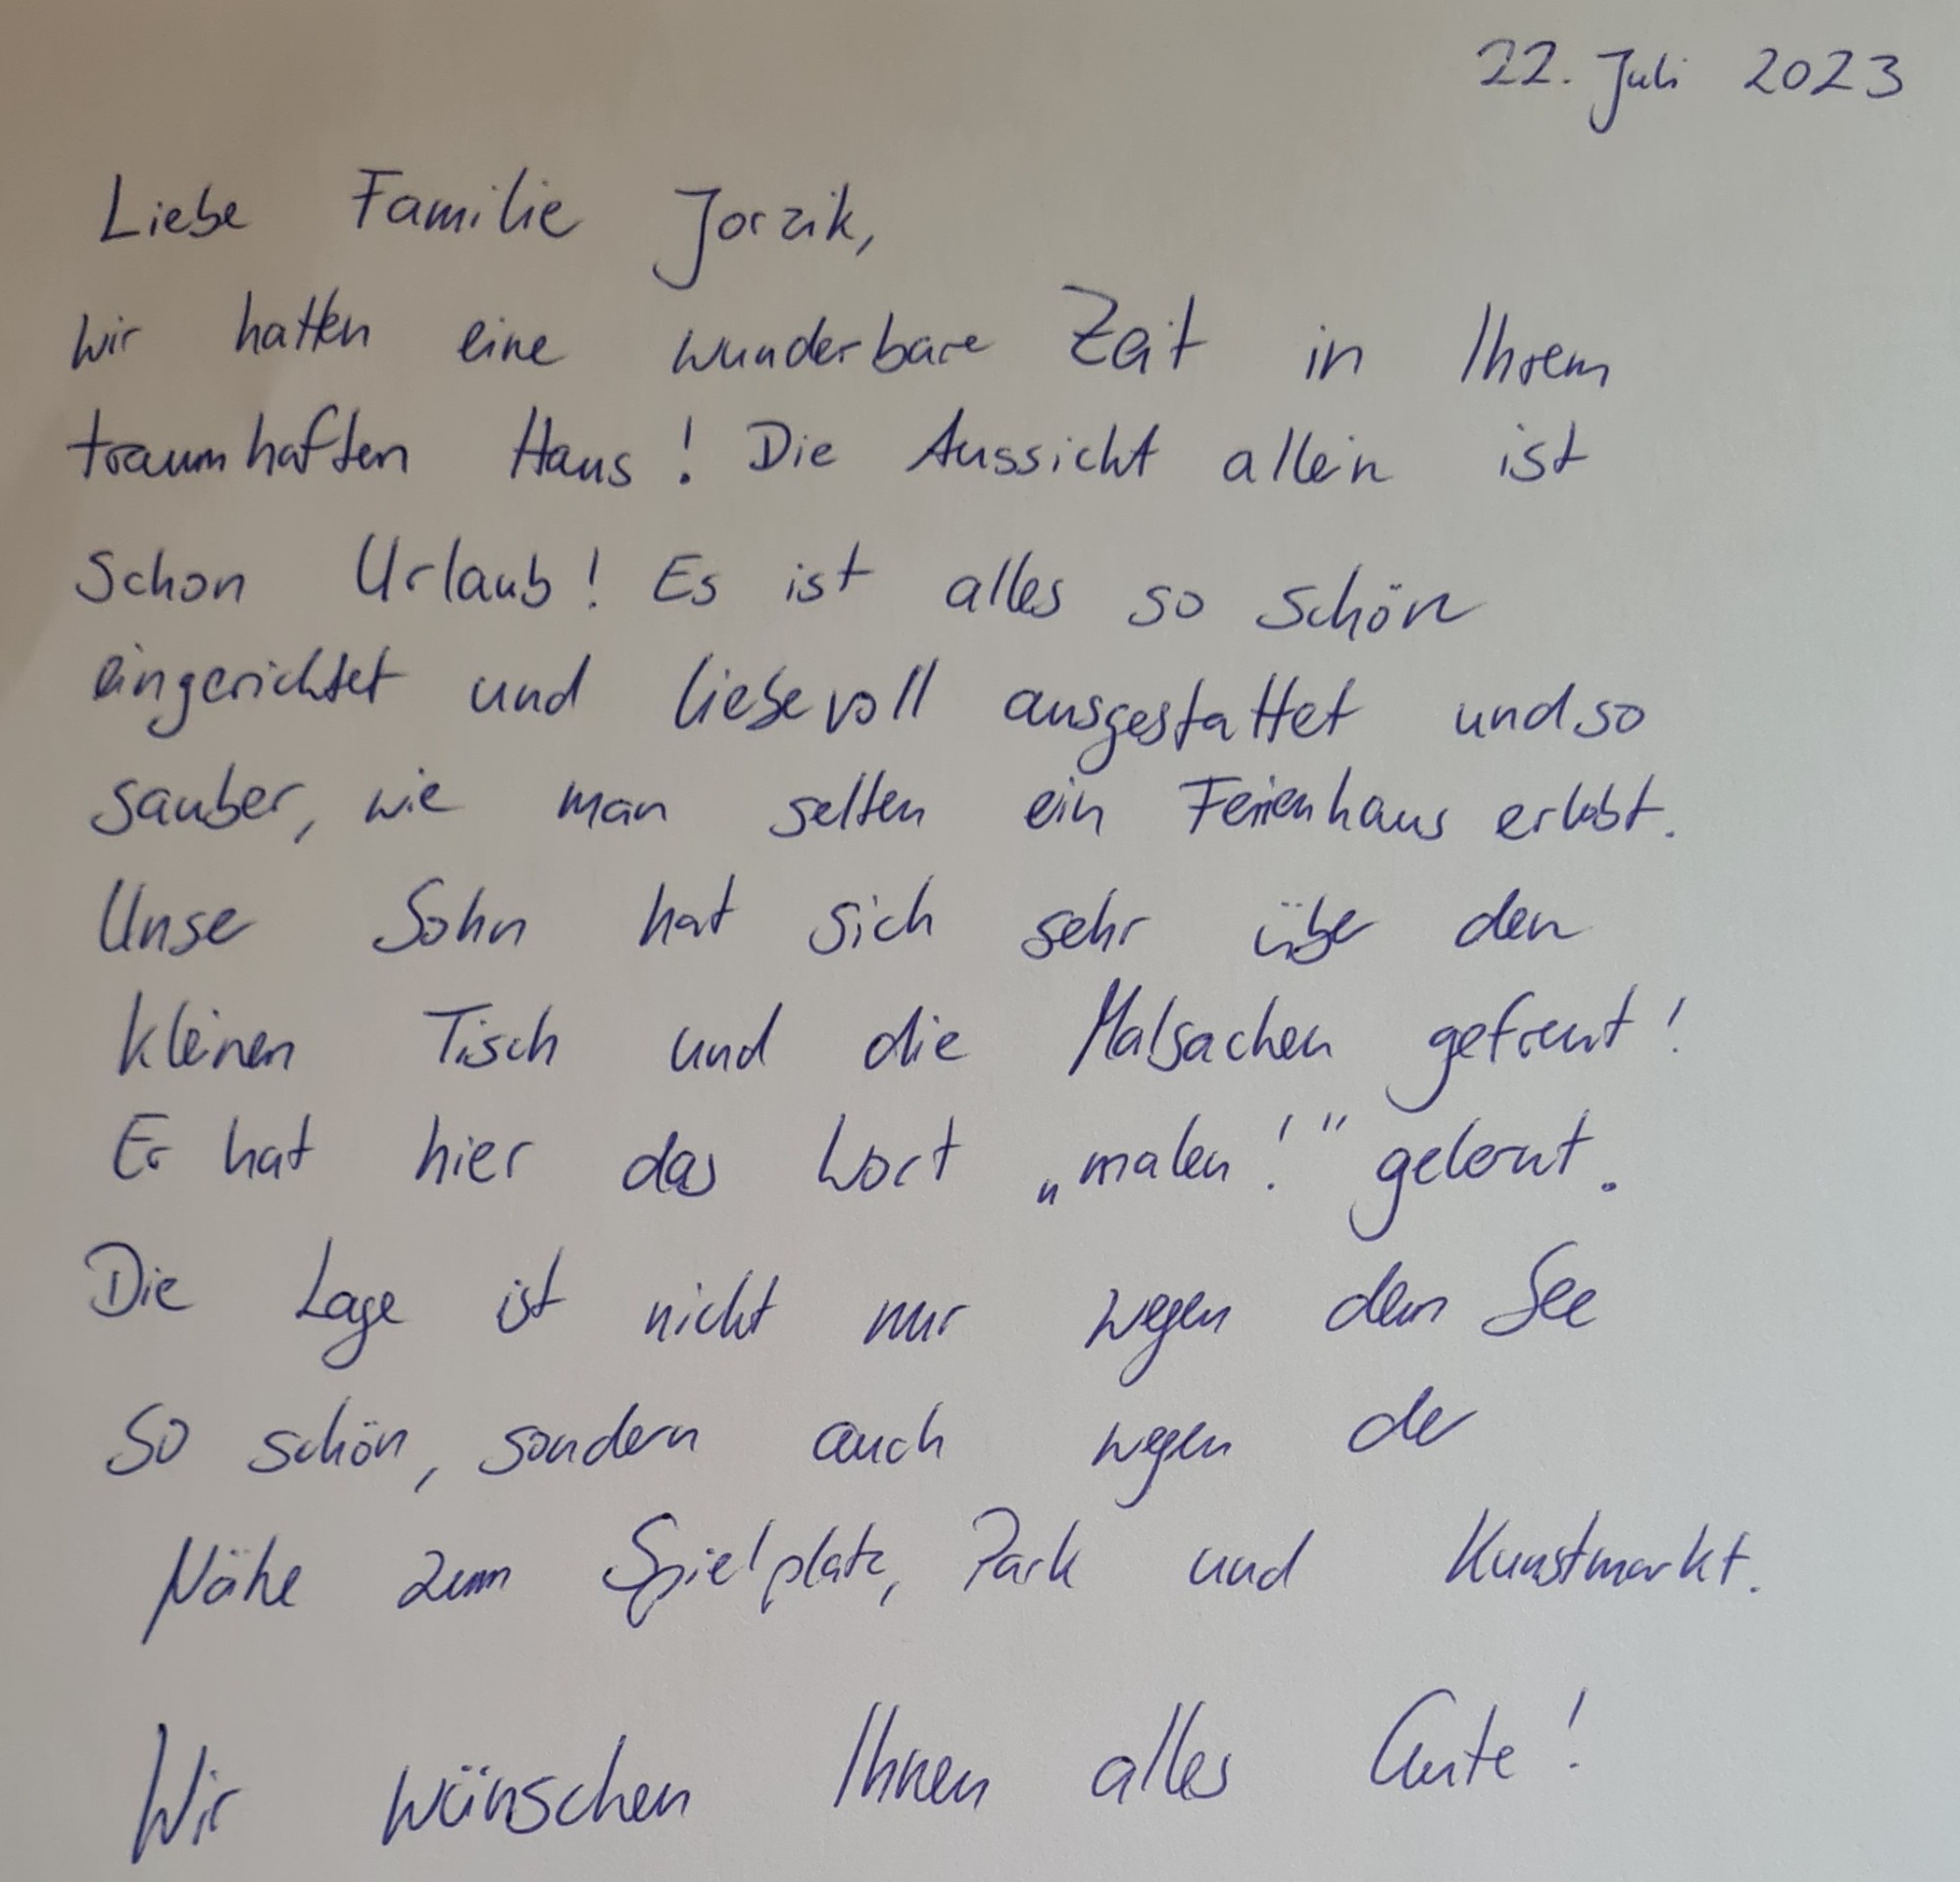 22. Juli 2023
Liebe Familie Jorzik,
wir hatten eine wunderbare Zeit in Ihrem
traumhaften Haus! Die Aussicht allein ist
schon Urlaub! Es ist alles so schön
eingerichtet und liebevoll ausgestattet und so
sauber, wie man selten ein Ferienhaus erlebt.
Unser Sohn hat sich sehr über den
kleinen Tisch und die Malsachen gefreut!
Er hat hier das Wort „malen!“ gelernt.
Die Lage ist nicht nur wegen dem See
so schön, sondern auch wegen der
Nähe zum Spielplatz, Park und Kunstmarkt.
Wir wünschen Ihnen alles Gute!